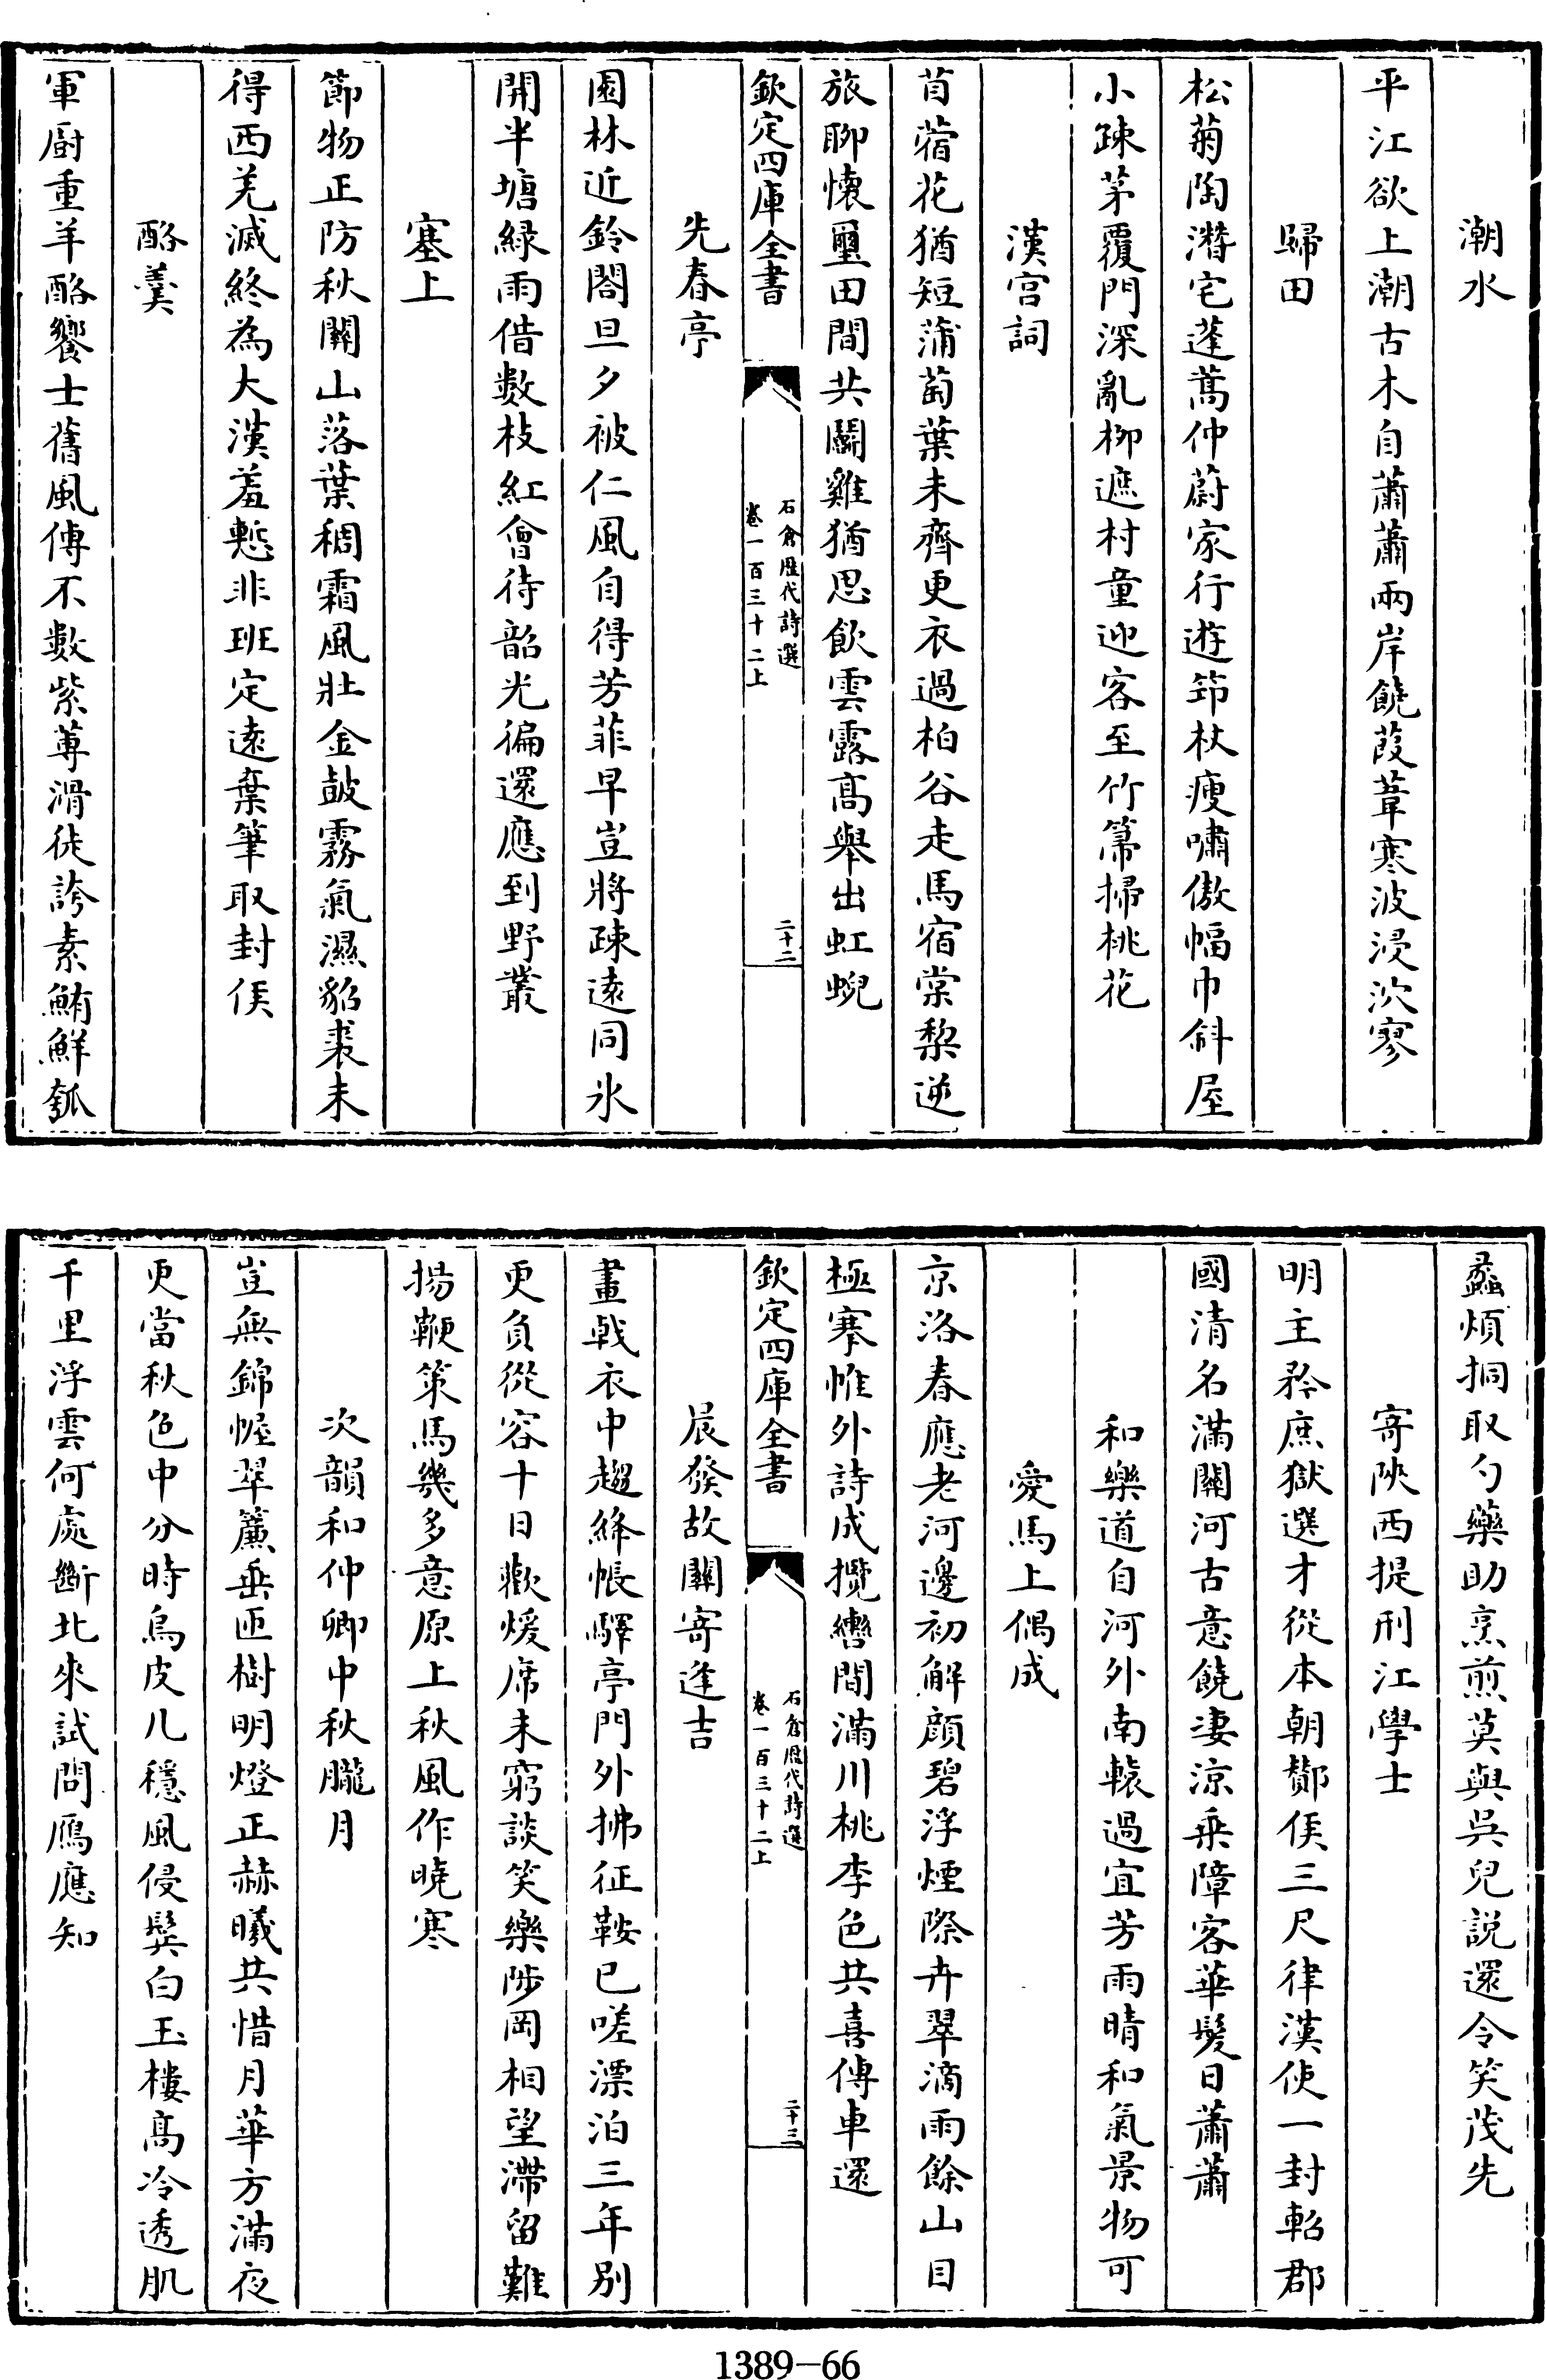 潮水
平江欲上潮古木自蕭蕭兩岸饒葭葦寒波浸泬寥
歸田
松菊陶潛宅蓬蒿仲蔚家行遊笻杖瘦嘯傲幅巾斜屋
小疎茅覆門深亂柳遮村童迎客至竹箒掃桃花
漢宮詞
苜蓿花猶短蒲萄葉未齊更衣過柏谷走馬宿棠梨逆
旅聊懷璽田間共鬭雞猶思飲雲露髙舉出虹蜺
欽定四庫全書
石倉歴代詩選
卷一百三十二上
二十二
先春亭
園林近鈴閤旦夕被仁風自得芳菲早豈將疎遠同氷
開半塘緑雨借數枝紅㑹待韶光徧還應到野叢
塞上
節物正防秋關山落葉稠霜風壯金鼓霧氣濕貂裘未
得西羌滅終為大漢羞慙非班定遠棄筆取封侯
酪羮
軍廚重羊酪饗士舊風傳不數紫蓴滑徒誇素鮪鮮瓠
蠡煩挏取勺藥助烹煎莫與吳兒説還令笑茂先
寄陜西提刑江學士
明主矜庶獄選才從本朝酇侯三尺律漢使一封軺郡
國清名滿關河古意饒凄涼乗障客華髮日蕭蕭
和樂道自河外南轅過宜芳雨晴和氣景物可
愛馬上偶成
京洛春應老河邊初解顔碧浮煙際卉翠滴雨餘山目
極搴帷外詩成攬轡間滿川桃李色共喜傳車還
欽定四庫全書
石倉歴代詩選
卷一百三十二上
二十三
晨發故關寄逢吉
畫㦸衣中趨絳帳驛亭門外拂征鞍已嗟漂泊三年别
更負從容十日歡煖席未窮談笑樂陟岡相望滯留難
揚鞭策馬幾多意原上秋風作曉寒
次韻和仲卿中秋朧月
豈無錦幄翠簾垂匝樹明燈正赫曦共惜月華方滿夜
更當秋色中分時烏皮几穩風侵鬂白玉樓髙冷透肌
千里浮雲何處斷北來試問鴈應知
1389-66